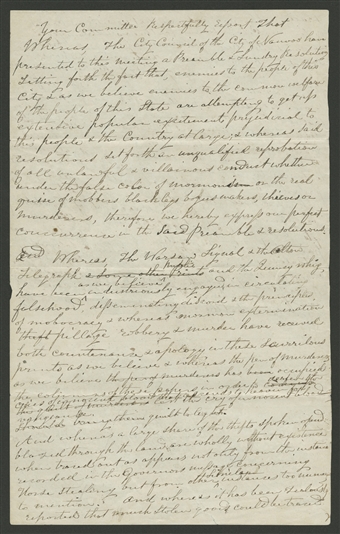 Your Committee Respectfully report That
Whereas, The City Council of the City of Nauvoo have
presented to this meeting a Preamble & Sundry Resolutions
Setting forth the fact that, enemies to the people of this
City & as we believe enemies to the common welfare
of the people of this State are attempting to get up
extensive popular excitements prejudicial to
this people & the Country at large & whereas said
resolutions set forth unqualified reprobation
of all unlawful & villainous conduct whether
under the false color of mormonism or the real
guise of mobbers blacklegs bogus makers thieves or
murderers, therefore we hereby express our perfect
concurrence in the Said Preamble & resolutions.
And Whereas, The Warsaw Signal & the Alton
Telegraph & and the Quincy whig,
have been as we believe industriously engaged in circulating
falsehood, disseminating discord & the principles
of mobocracy & whereas mormon extermination
pillage Robbery & murder have received
both countenance & apology in these scurrilous
prints as we believe & whereas the pen of murderers
as we believe has been occupied
the columns of these papers in order to
innocent blood
And whereas a large share of the thefts spoken of and
blazed through the land are wholly without existence
when traced out as appears not only from the instances
recorded in the Governors message concerning
Horse Stealing but from other instances too numerous
to mention. And whereas it has been zealously
reported that much Stolen goods could be traced